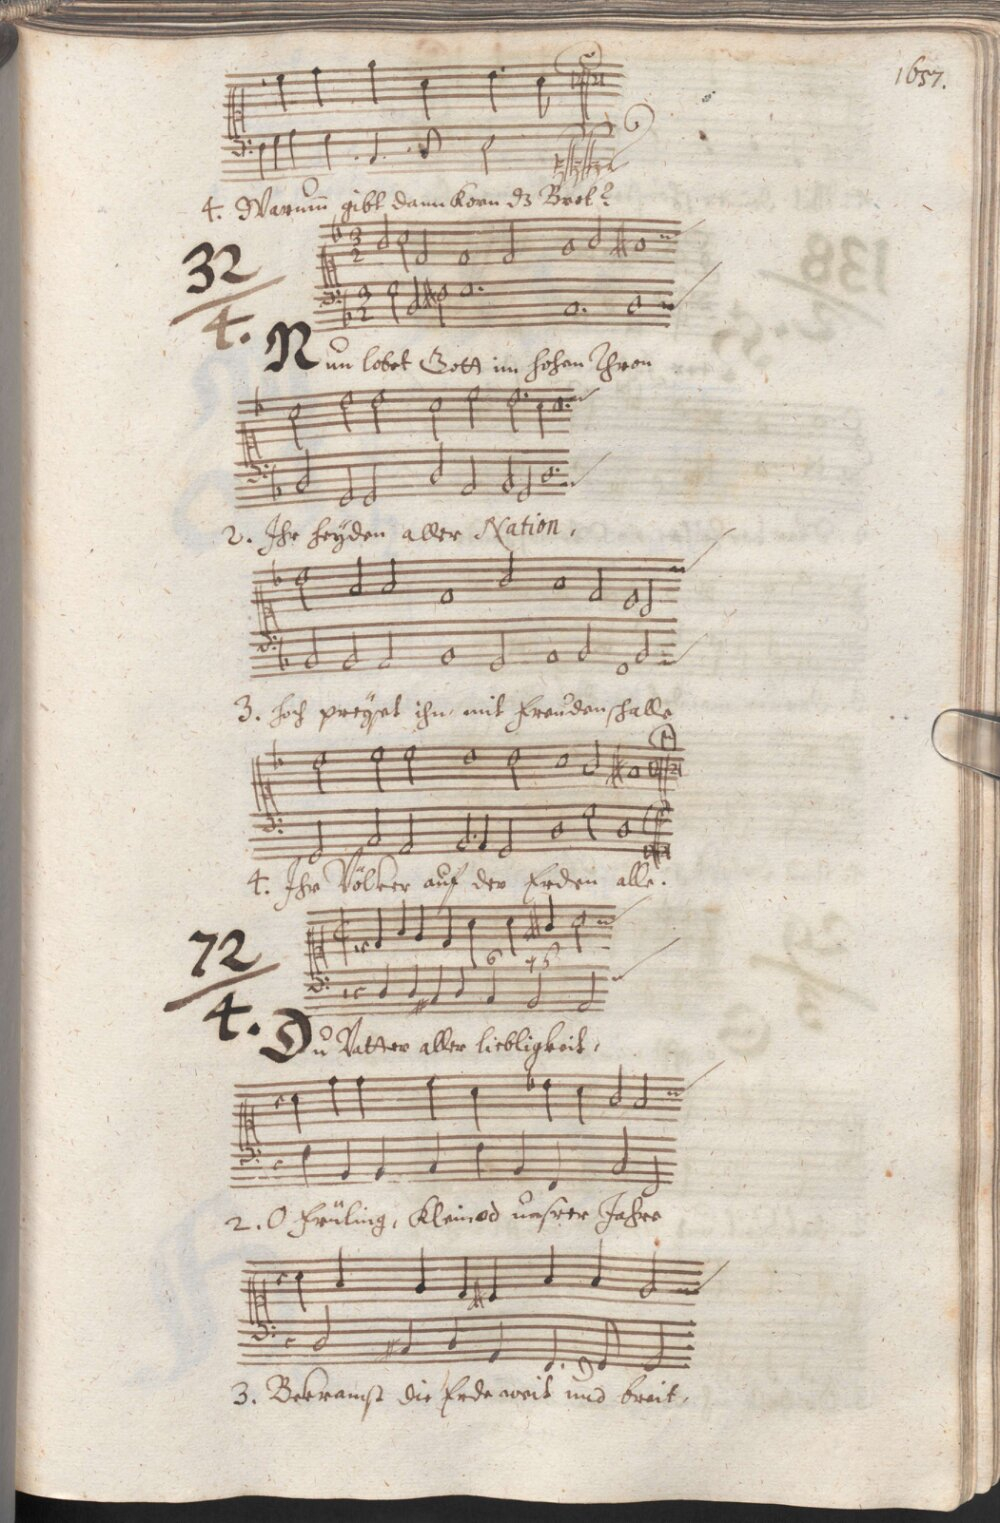 1657.
4. Warum̄ gibt dann Korn dz Brot?
32
4.
Nun lobet Gott im hohen Thron
2. Ihr Heÿden aller Nation,
3. Hoch preÿset ihn mit Freudenschalle
4. Ihr Völker auf der Erden alle.
72
4.
6 ♯6
Du Vatter aller liebligkeit,
2. O Früling, Kleinod unsrer Jahre
3. Bekränzt die Erde weit und breit,